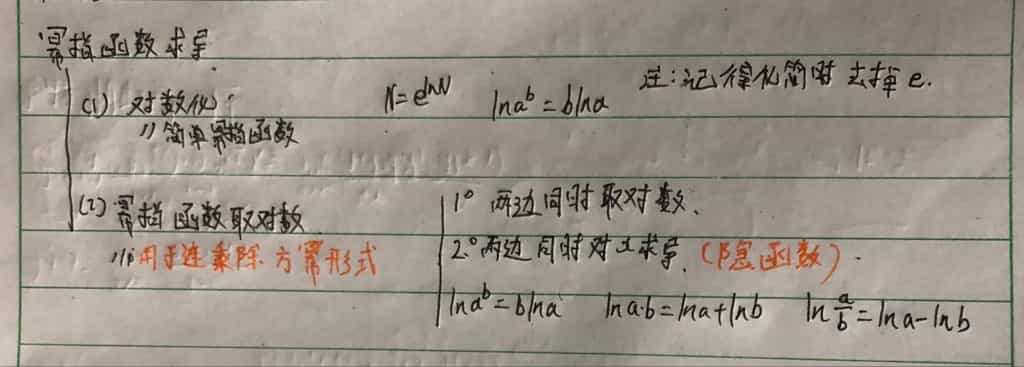 幂指函数求导
(1) 对数化: N=e^lnN lna^b=blna 注:记得化简时去掉e.
// 简单幂指函数
(2) 幂指函数取对数 1° 两边同时取对数.
// 用于连乘除方幂形式 2° 两边同时对x求导.(隐函数).
lna^b=blna lna·b=lna+lnb ln a/b=lna-lnb